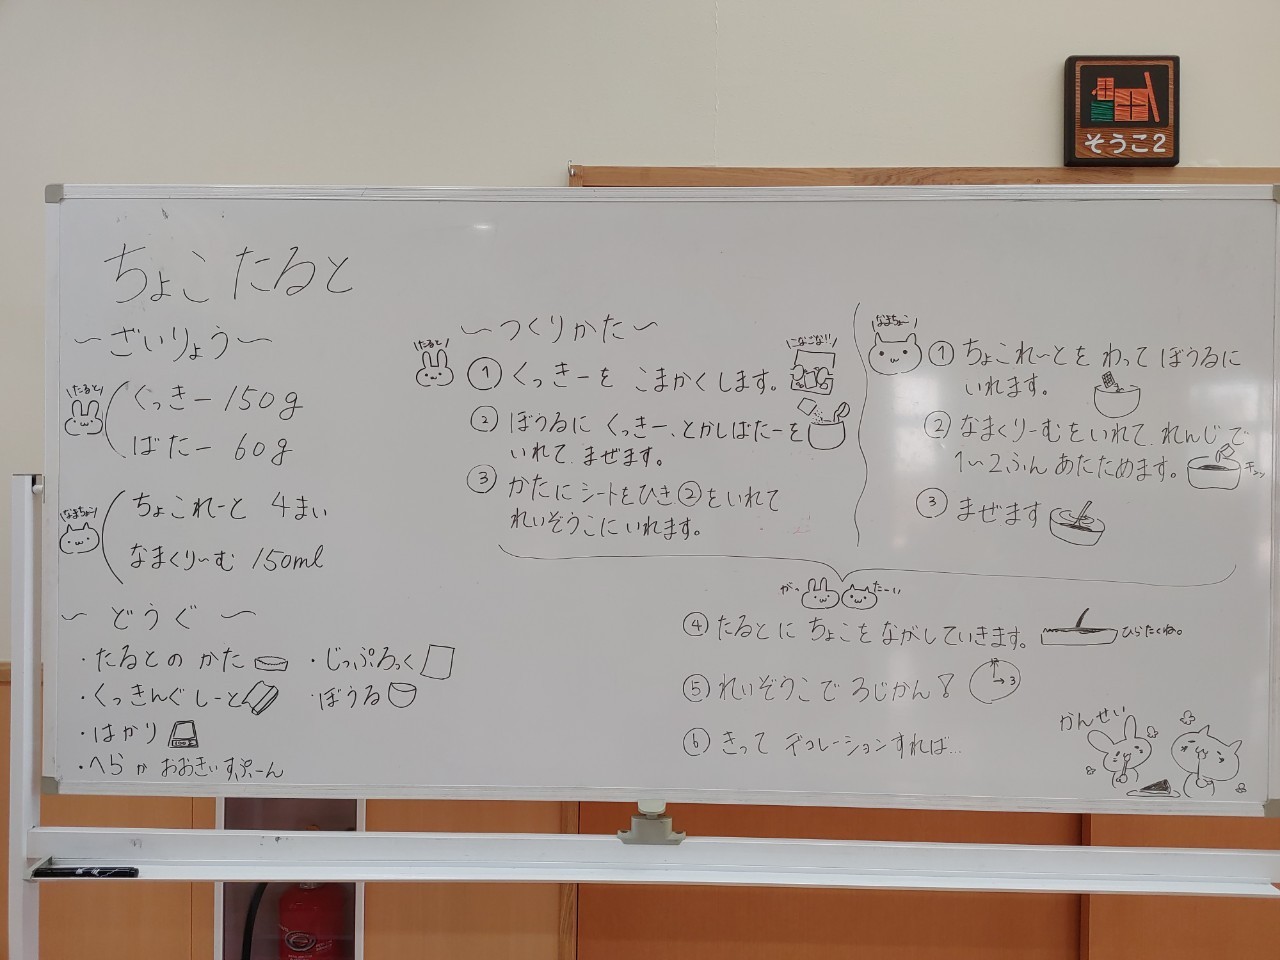 そうこ2
ちょこたると
〜ざいりょう〜
たると
くっきー 150g
ばたー 60g
なまちょこ
ちょこれーと 4まい
なまくりーむ 150ml
〜どうぐ〜
・たるとの かた
・じっぷろっく
・くっきんぐしーと
・ぼうる
・はかり
・へらか おおきいすぷーん
〜つくりかた〜
たると
① くっきーを こまかくします。
こなごな!!
② ぼうるに くっきー、とかしばたーを
いれて まぜます。
③ かたにシートをひき ②をいれて
れいぞうこにいれます。
なまちょこ
① ちょこれーとを わって ぼうるに
いれます。
② なまくりーむをいれて れんじで
1〜2ふん あたためます。
③ まぜます
がっ
たーい
④ たるとに ちょこを ながしていきます。
ひらたくね。
⑤ れいぞうこで 3じかん!
3
⑥ きって デコレーションすれば...
かんせい